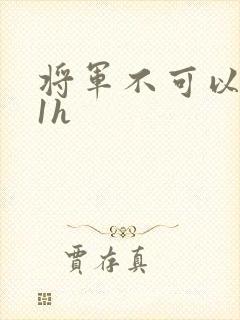 将軍不可以
1h
賈存真